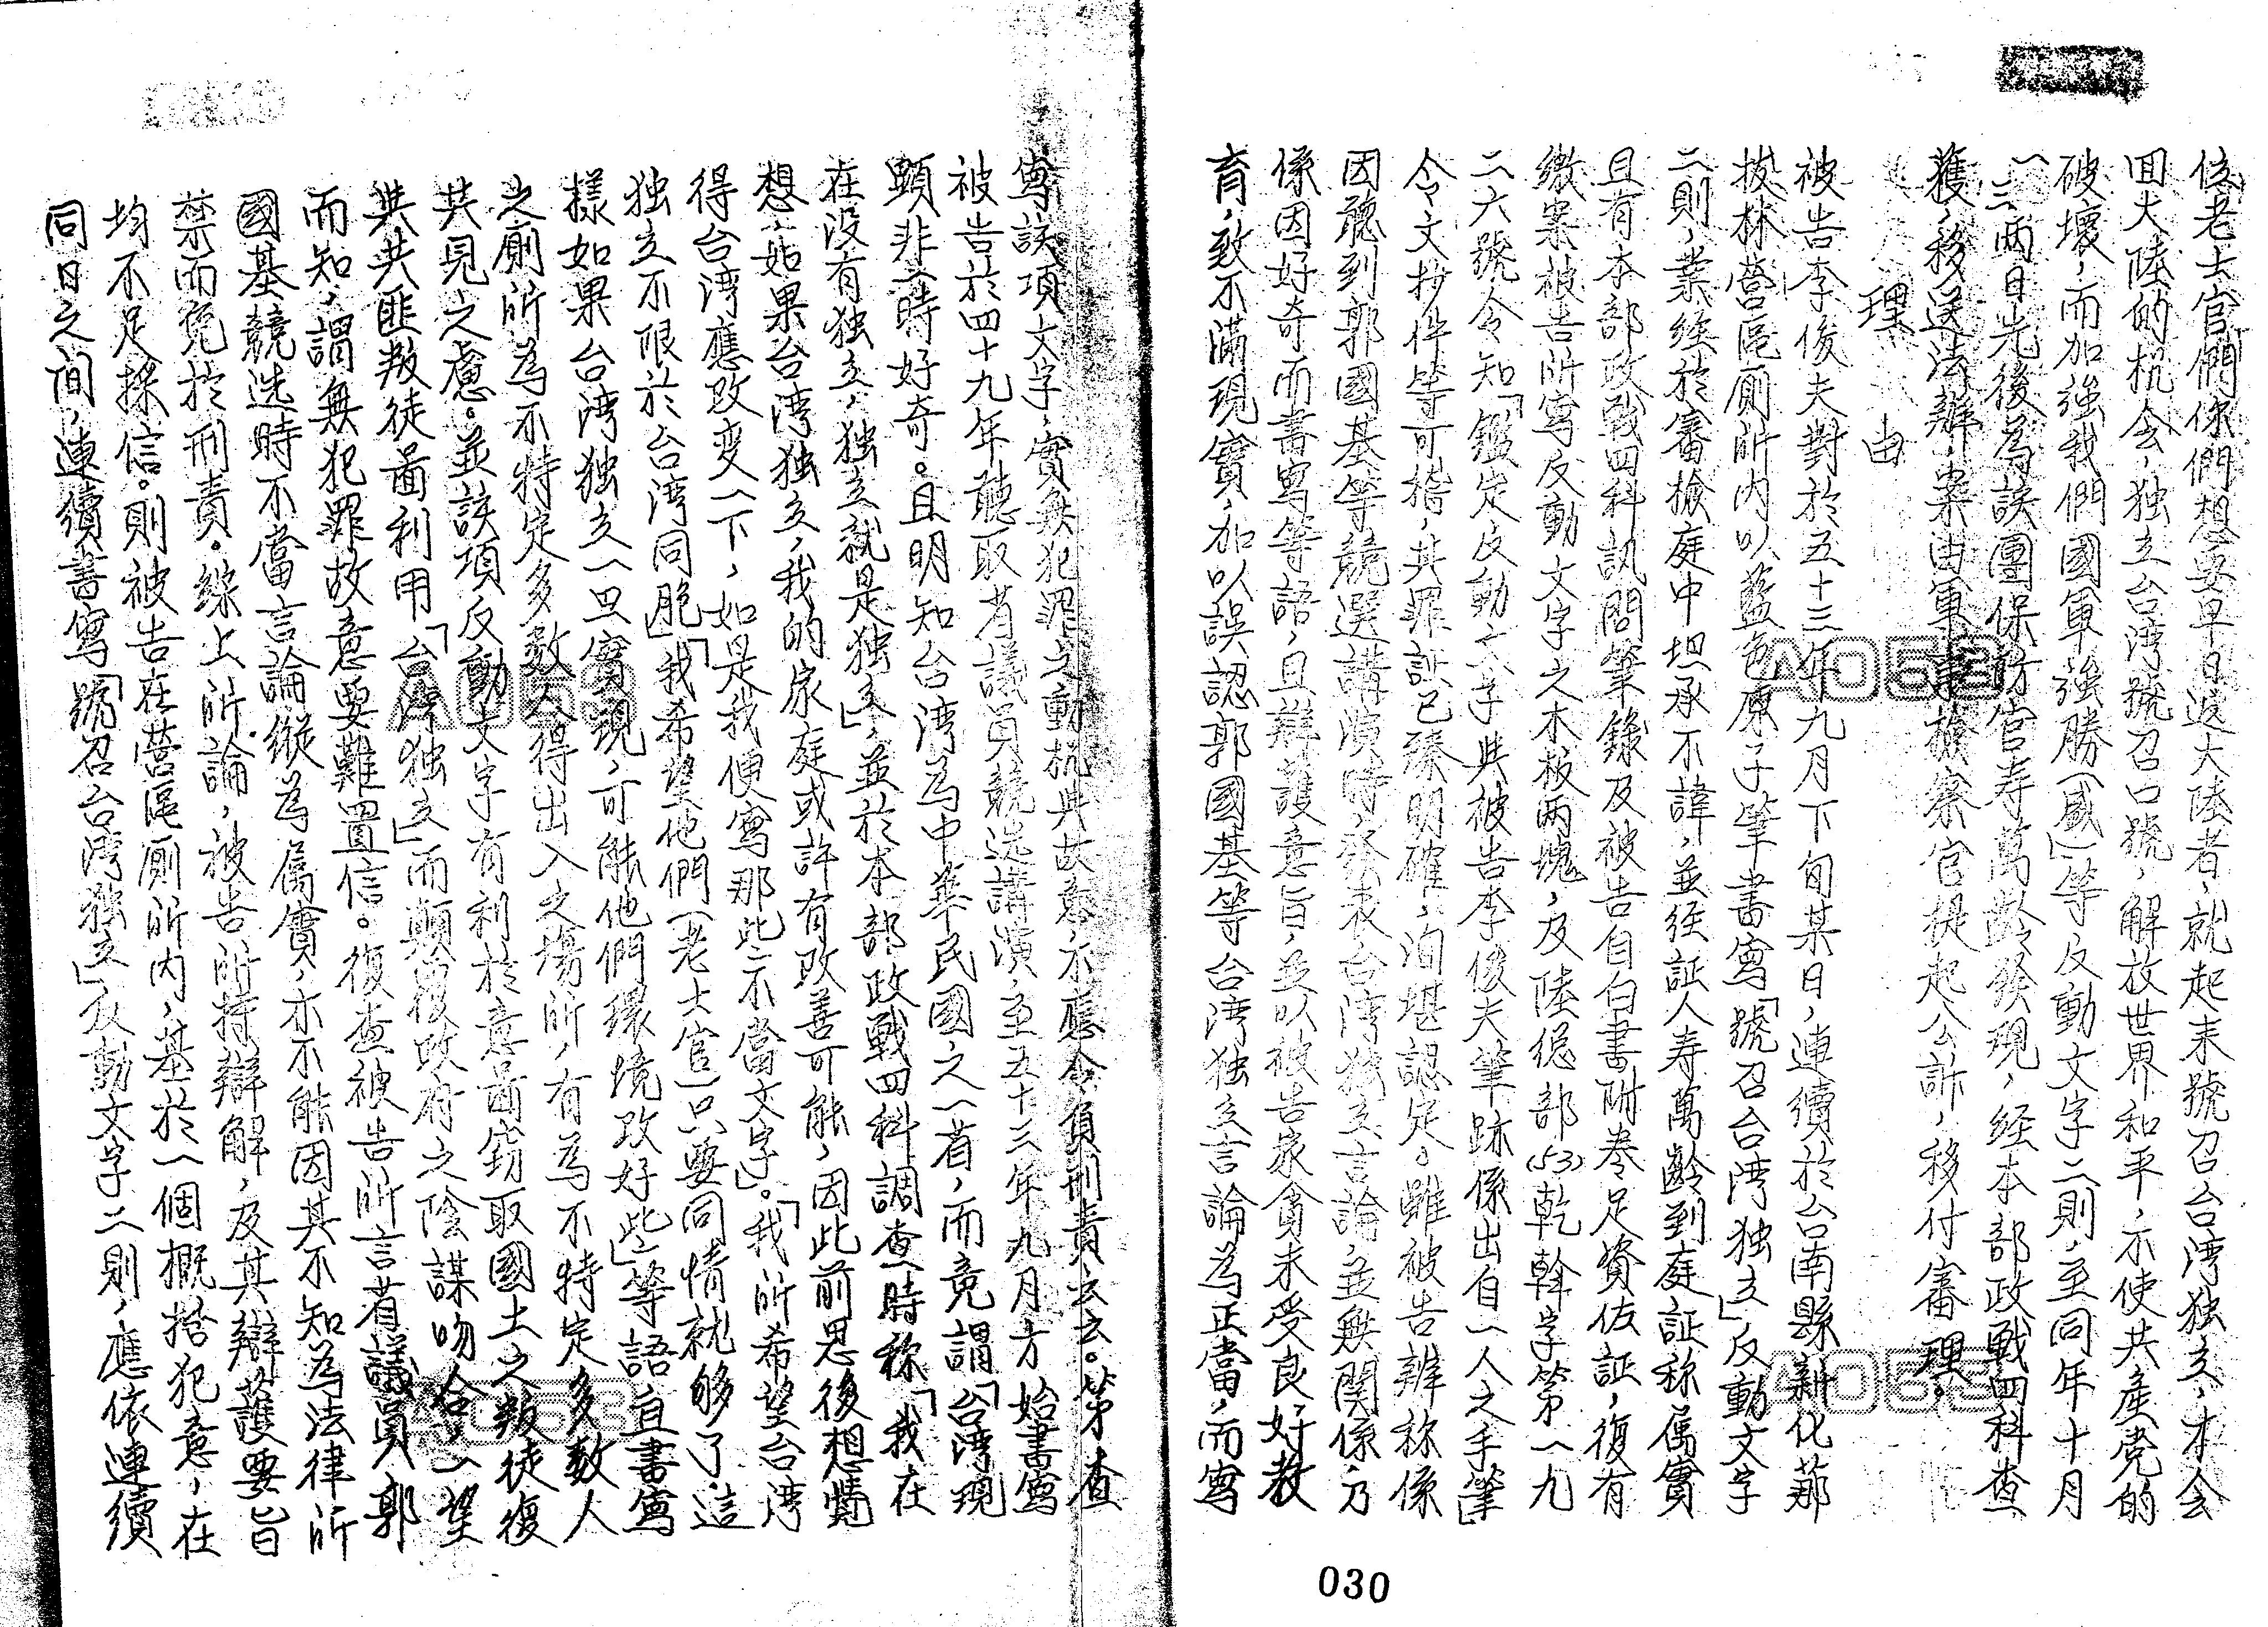 位老士官們你們想要早日返大陸者，就起來號召台湾独立，才会
回大陸的机会，独立台湾號召口號，解放世界和平，不使共產党的
破壞，而加強我們國軍強勝(盛)」等反動文字二則，至同年十月
一、三、兩日先後為該團保防官寿萬齡發現，経本部政戰四科查
獲，移送法辦，案由軍事檢察官提起公訴，移付審理。
理由
被告李俊夫對於五十三年九月下旬某日，連續於台南縣新化茄
拔林營區厠所内以藍色原子筆書寫「號召台湾独立」反動文字
二則，業経於審檢庭中坦承不諱，並経証人寿萬齡到庭証称属實
且有本部政戰四科訊問筆錄及被告自白書附卷足資佐証，復有
繳案被告所寫反動文字之木板兩塊，及陸総部(53)乾幹字第一九
二六號令知「鑑定反動文字與被告李俊夫筆跡係出自一人之手筆」
令文抄件等可稽，其罪証已臻明確，洵堪認定。雖被告辨称係
因聽到郭國基等競選講演時，發表台湾独立言論，並無関係乃
係因好奇而書寫等語，且辯護意旨，並以被告家貧未受良好教
育，致不滿現實，加以誤認郭國基等台湾独立言論為正當，而寫
寫該項文字，實無犯罪之動机與故意，不應令負刑責云云。第查
被告於四十九年聽取省議員競选講演，至五十三年九月方始書寫
顯非一時好奇。且明知台湾為中華民國之一省，而竟謂「台湾現
在没有独立，独立就是独立」，並於本部政戰四科調查時称「我在
想，如果台湾独立，我的家庭或許有改善可能，因此前思後想覺
得台湾應改变一下，如是我便寫那些不當文字」。「我所希望台湾
独立不限於台湾同胞」「我希望他們(老士官)只要同情就够了，這
樣如果台湾独立一旦實現，可能他們環境改好些」等語且書寫
之厠所為不特定多数人得出入之場所，有為不特定多数人
共見之慮。並該項反動文字有利於意啚窃取國土之叛徒復
與共匪叛徒啚利用「台湾独立」而顛覆政府之陰謀吻合，一望
而知，謂無犯罪故意要難置信。復查被告所言省議員郭
國基競选時不當言論縱為属實，亦不能因其不知為法律所
禁而免於刑責。綜上所論，被告所持辯解，及其辯護要旨
均不足採信。則被告在營區厠所内，基於一個概括犯意，在
同日之间，連續書寫「號召台湾独立」反動文字二則，應依連續
030
A053
A053
A053
A053